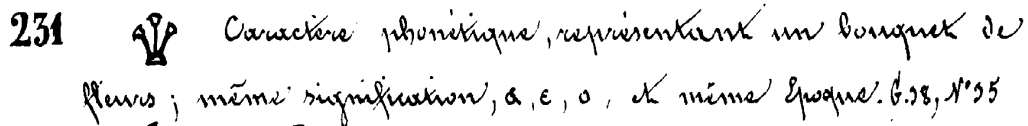 231 Caractère phonétique, représentant un bouquet de
fleurs ; même signification, a, e, o, et même Epoque. G. 38, N° 35